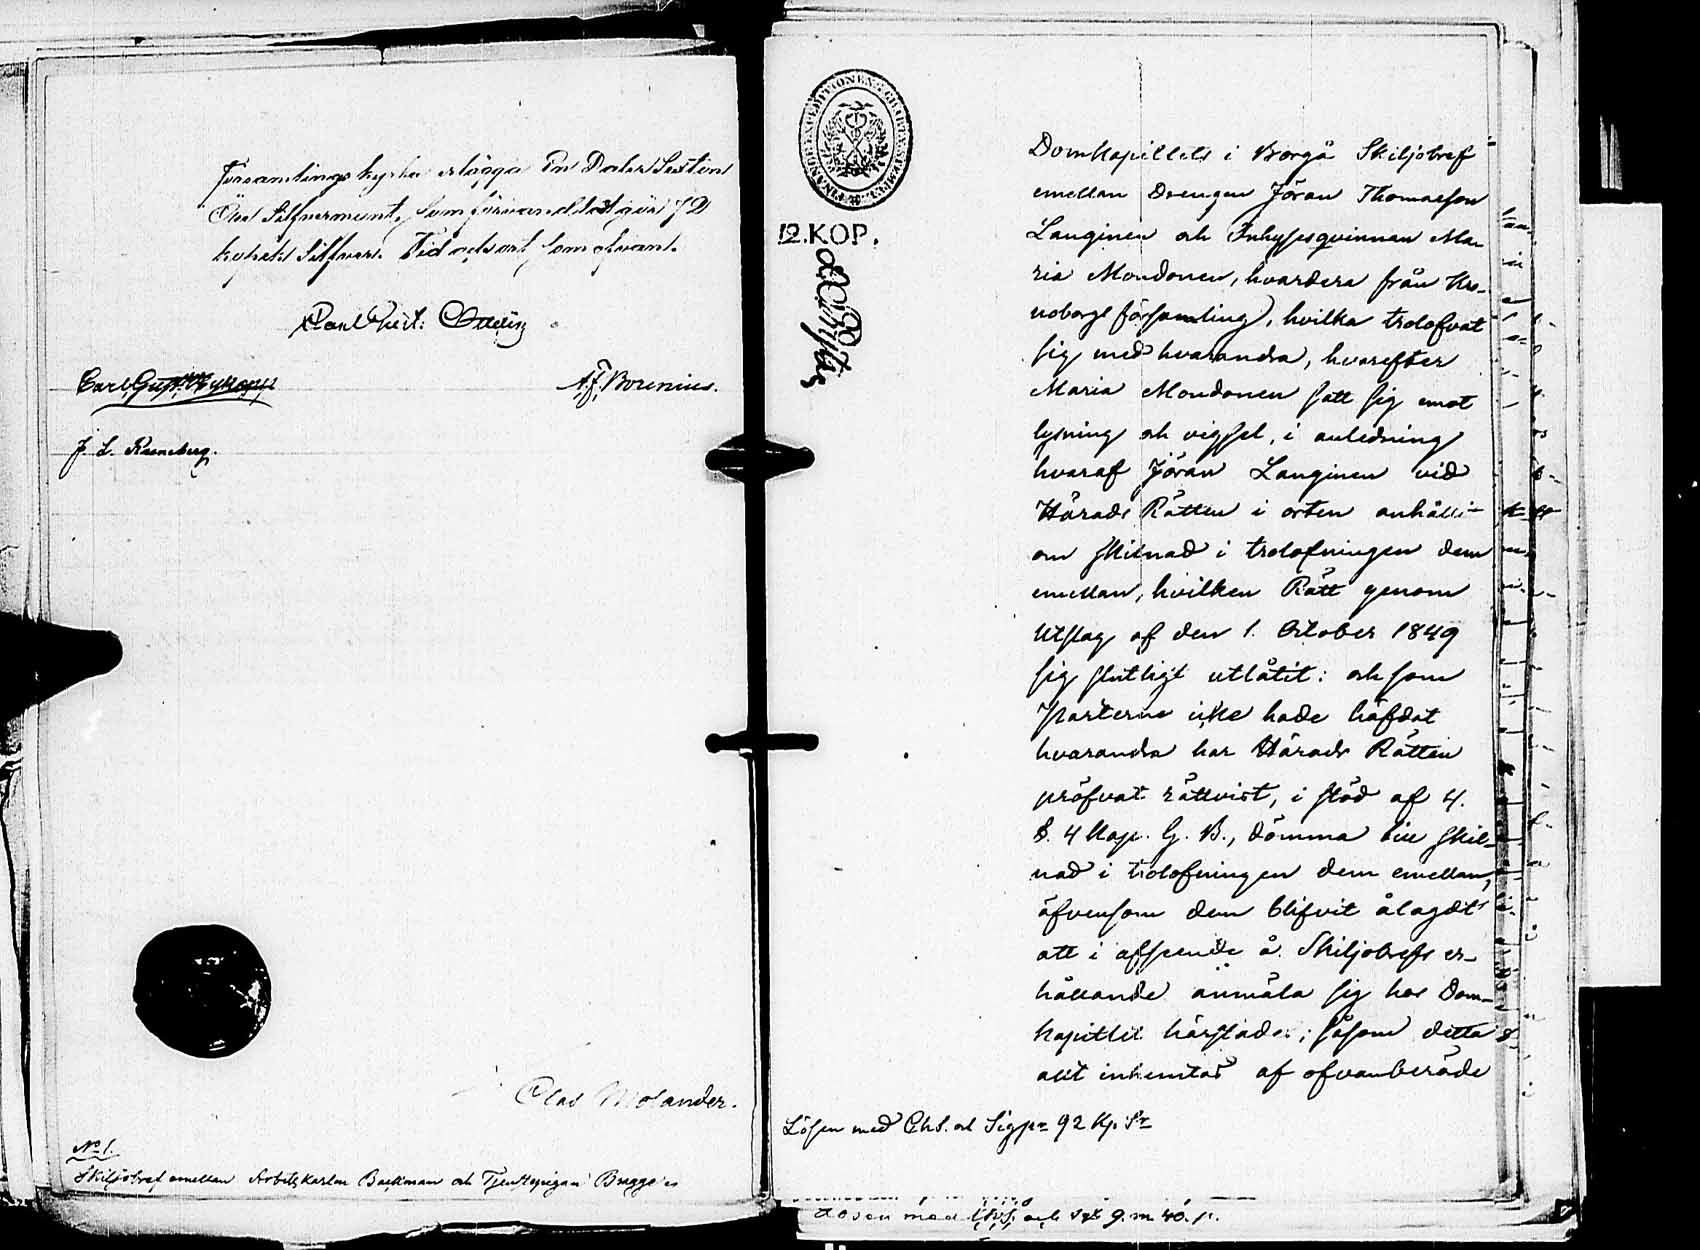 församlings kyrka erlägga En Daler Sexton
Öre Silfvermynt, som förvandladt gör 72
kopek Silfver. Tid och ort som ofvan.
Carl Gust. Ottelin
Carl Gust. Wykopff
A. F. Borenius.
J. L. Runeberg.
Clas Molander.
No 1.
Skiljobref emellan Arbetskarlen Backman och Tjenstepigan Brygger
12. KOP.
Domkapitlets i Borgå Skiljobref
emellan Drengen Jöran Thomasson
Langinen och Inhysesqvinnan Ma-
ria Mondonen, hvardera från Kro-
noborgs församling, hvilka trolofvat
sig med hvarandra, hvarefter
Maria Mondonen satt sig emot
lysning och vigsel, i anledning
hvaraf Jöran Langinen vid
Härads Rätten i orten anhållit
om skilnad i trolofningen dem
emellan, hvilken Rätt genom
Utslag af den 1. October 1849
sig slutligt utlåtit: och som
Parterne icke hade häfdat
hvarandra har Härads Rätten
pröfvat rättvist, i stöd af 4.
§. 4 Kap. G. B., dömma till skil-
nad i trolofningen dem emellan,
äfvensom dem blifvit ålagdt
att i afseende å Skiljobrefs er-
hållande anmäla sig hos Dom-
kapitlet härstädes; såsom detta
allt inhemtas af ofvanberörde
Lösen med Chs. och Sigr 92 Kp. Sr
Lösen med Chs. och Sgt 9. m. 40. p.